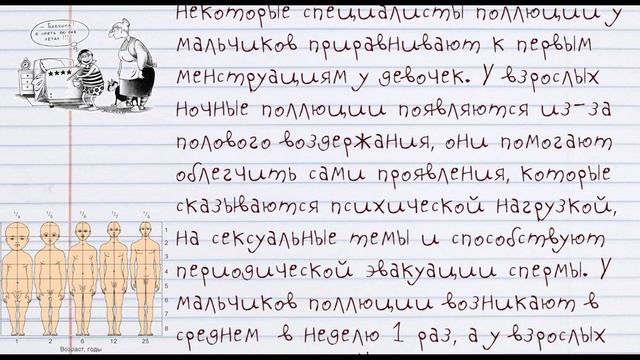 - Бабушка!
я опять во сне
летал !!!
некоторые специалисты поллюции у
мальчиков приравнивают к первым
менструациям у девочек. У взрослых
ночные поллюции появляются из-за
полового воздержания, они помогают
облегчить сами проявления, которые
сказываются психической нагрузкой,
на сексуальные темы и способствуют
периодической эвакуации спермы. У
мальчиков поллюции возникают в
среднем в неделю 1 раз, а у взрослых
1/4 1/5 1/6 1/7 1/8
1
2
3
4
5
6
7
8
1 2 6 12 25
Возраст, годы